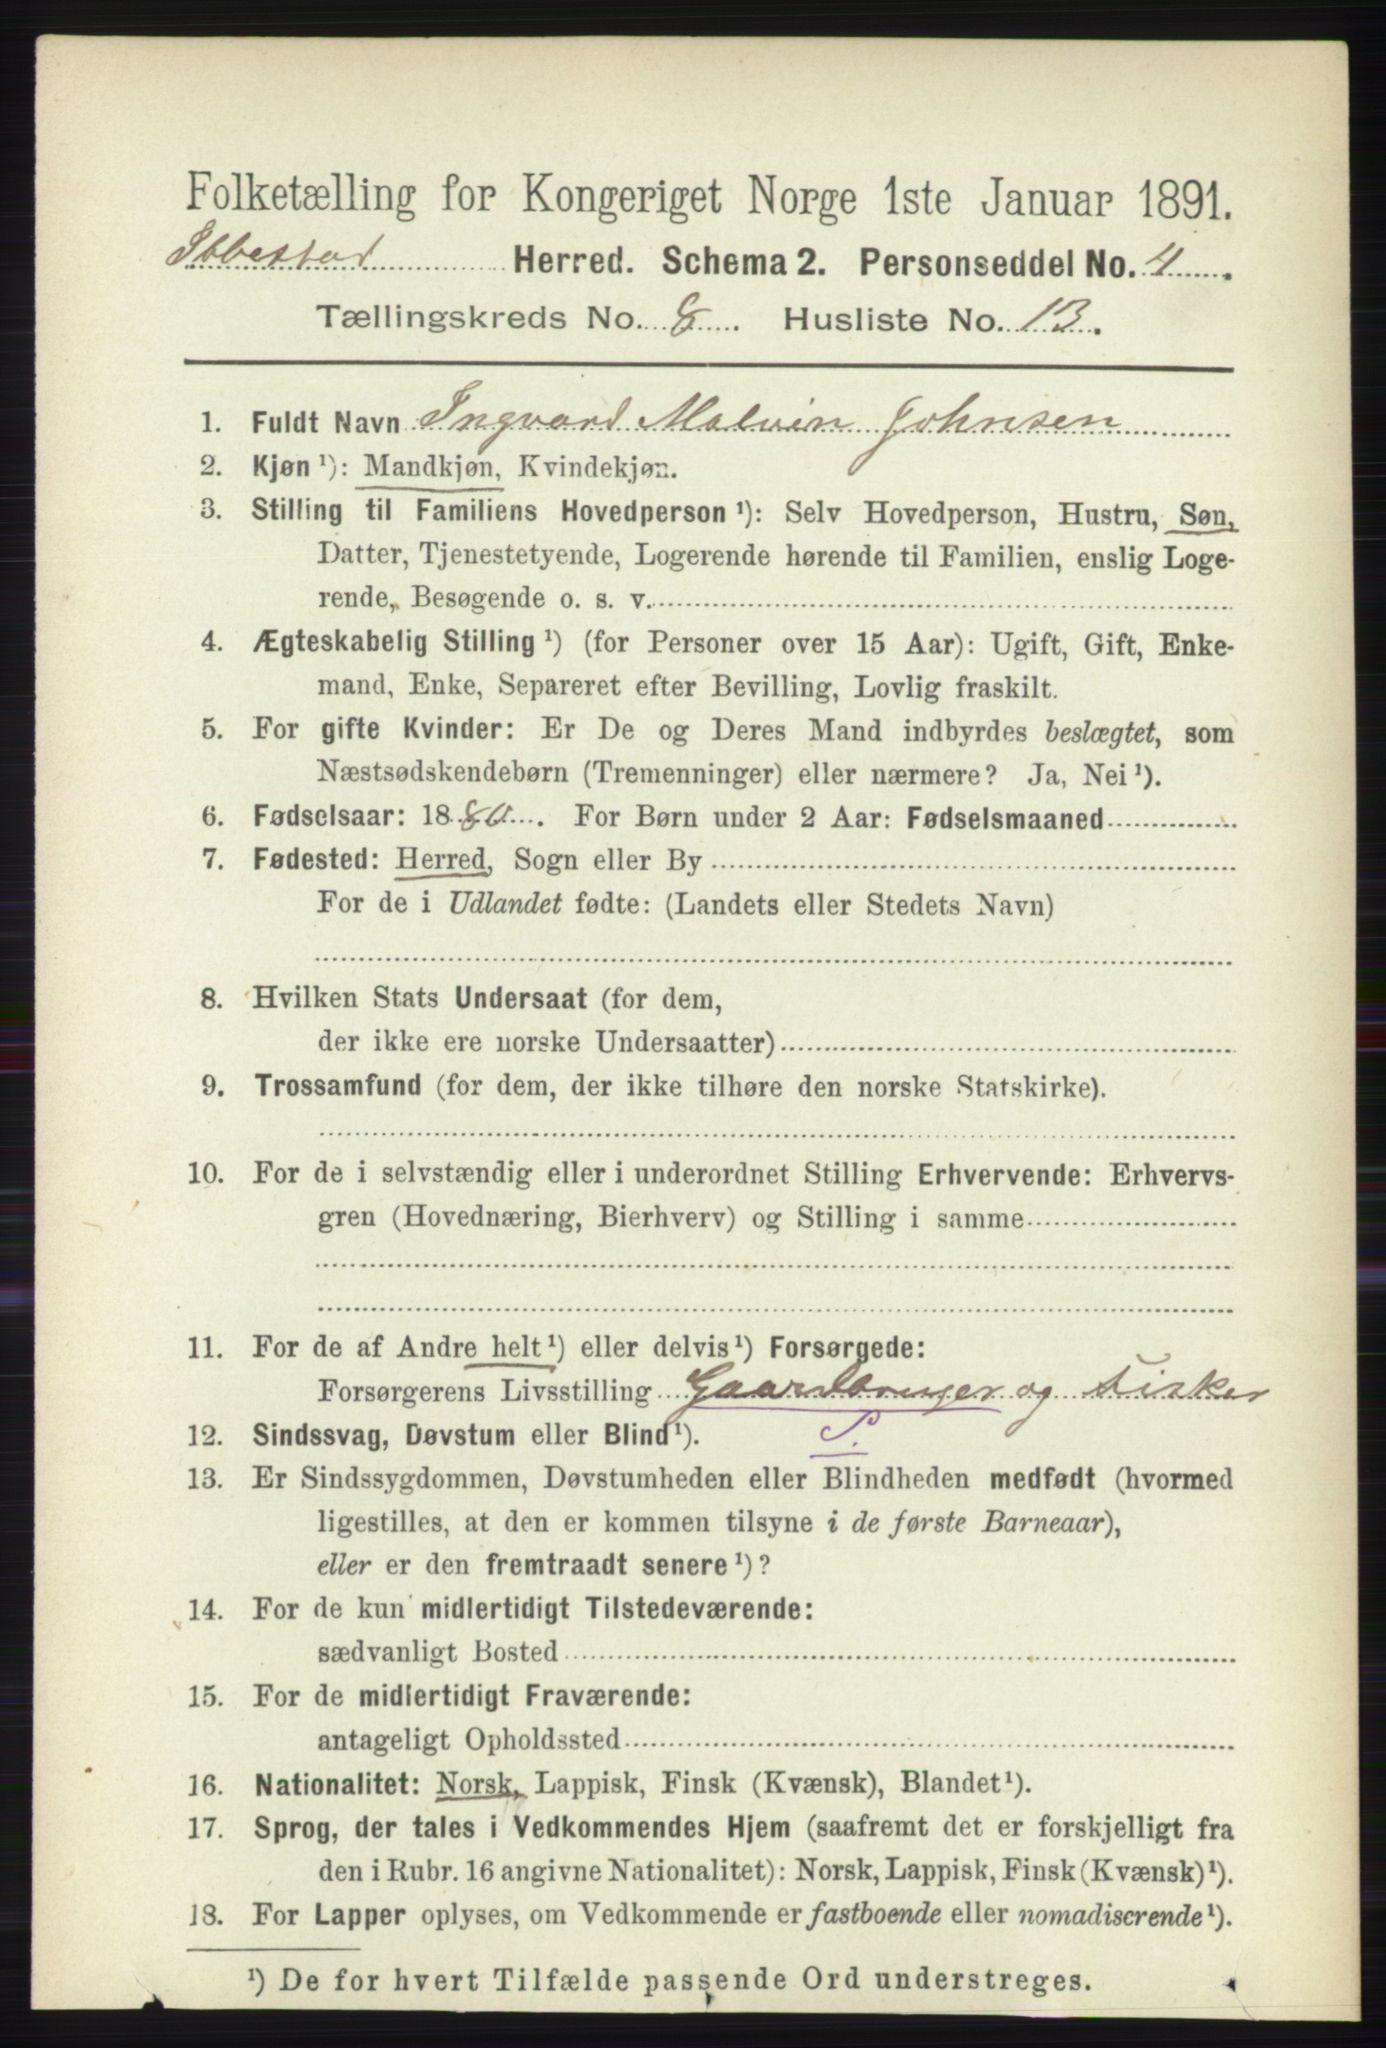 Folketælling for Kongeriget Norge 1ste Januar 1891.
Ibbestad Herred. Schema 2. Personseddel No. 4.
Tællingskreds No. 8. Husliste No. 13.
1. Fuldt Navn Ingvard Malvin Johnsen
2. Kjøn ¹): Mandkjøn, Kvindekjøn.
3. Stilling til Familiens Hovedperson ¹): Selv Hovedperson, Hustru, Søn,
Datter, Tjenestetyende, Logerende hørende til Familien, enslig Loge-
rende, Besøgende o. s. v.
4. Ægteskabelig Stilling ¹) (for Personer over 15 Aar): Ugift, Gift, Enke-
mand, Enke, Separeret efter Bevilling, Lovlig fraskilt.
5. For gifte Kvinder: Er De og Deres Mand indbyrdes beslægtet, som
Næstsødskendebørn (Tremenninger) eller nærmere? Ja, Nei ¹).
6. Fødselsaar: 1880. For Børn under 2 Aar: Fødselsmaaned
7. Fødested: Herred, Sogn eller By
For de i Udlandet fødte: (Landets eller Stedets Navn)
8. Hvilken Stats Undersaat (for dem,
der ikke ere norske Undersaatter)
9. Trossamfund (for dem, der ikke tilhøre den norske Statskirke).
10. For de i selvstændig eller i underordnet Stilling Erhvervende: Erhvervs-
gren (Hovednæring, Bierhverv) og Stilling i samme
11. For de af Andre helt ¹) eller delvis ¹) Forsørgede:
Forsørgerens Livsstilling Gaardbruger og Fisker
12. Sindssvag, Døvstum eller Blind ¹). S.
13. Er Sindssygdommen, Døvstumheden eller Blindheden medfødt (hvormed
ligestilles, at den er kommen tilsyne i de første Barneaar),
eller er den fremtraadt senere ¹)?
14. For de kun midlertidigt Tilstedeværende:
sædvanligt Bosted
15. For de midlertidigt Fraværende:
antageligt Opholdssted
16. Nationalitet: Norsk, Lappisk, Finsk (Kvænsk), Blandet ¹).
17. Sprog, der tales i Vedkommendes Hjem (saafremt det er forskjelligt fra
den i Rubr. 16 angivne Nationalitet): Norsk, Lappisk, Finsk (Kvænsk) ¹).
18. For Lapper oplyses, om Vedkommende er fastboende eller nomadiserende ¹).
¹) De for hvert Tilfælde passende Ord understreges.